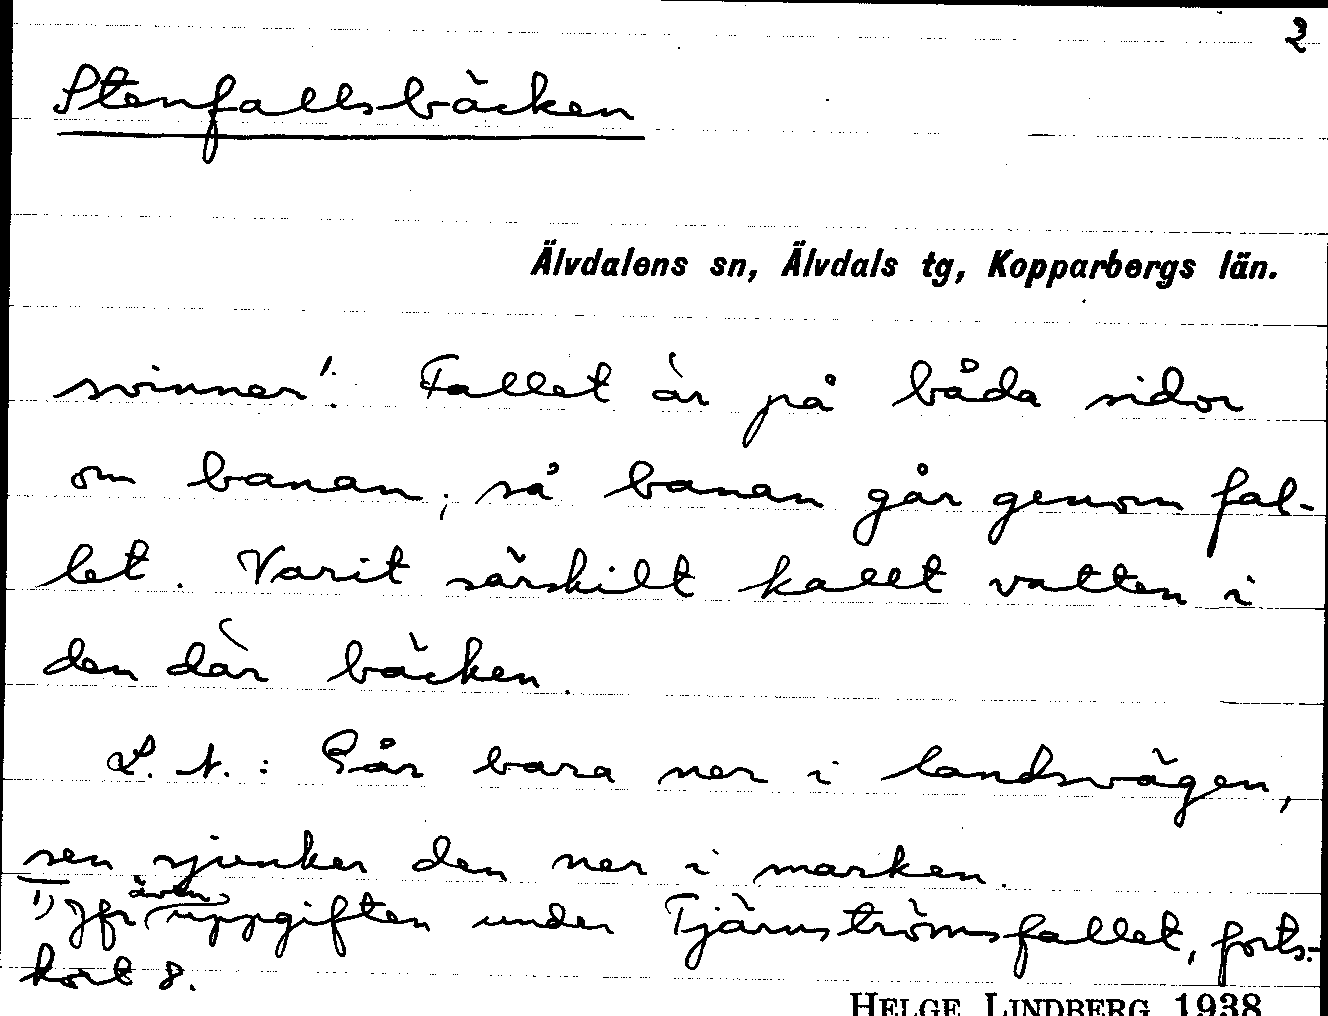 2
Stenfallsbäcken
Älvdalens sn, Älvdals tg, Kopparbergs län.
svinner¹. Fallet är på båda sidor
om banan, så banan går genom fal-
let. Varit särskilt kallt vatten i
den där bäcken.
L. N.: Går bara ner i landsvägen,
sen sjunker den ner i marken.
¹) Jfr även uppgiften under Tjärnströmsfallet, forts.-
kort 8.
HELGE LINDBERG 1938